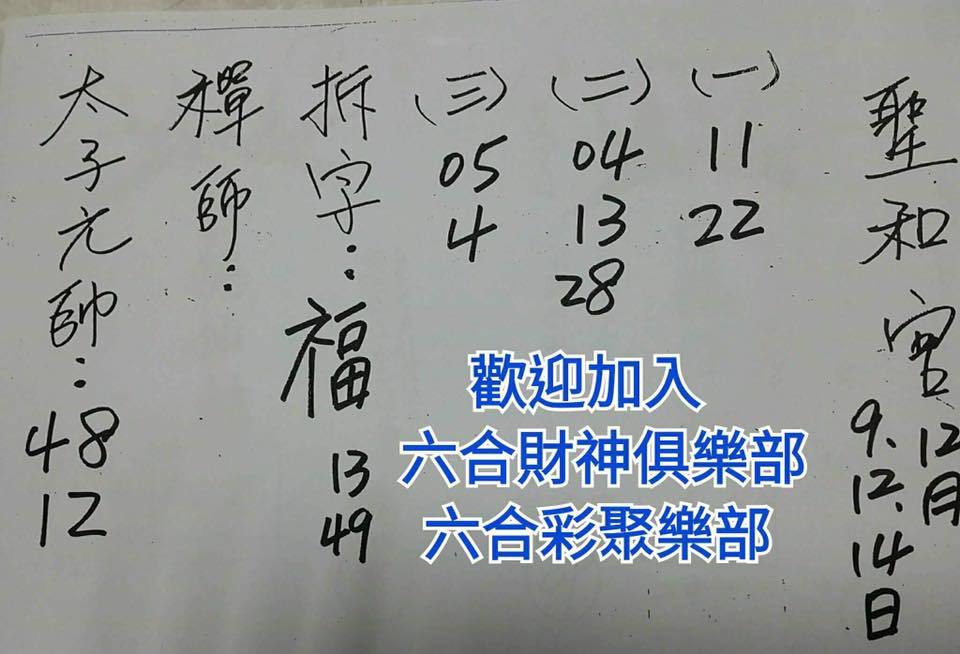 聖和宮
12月
9、12、14日
(一)
11
22
(二)
04
13
28
(三)
05
4
拆字：福
13
49
禪師：
太子元帥：
48
12
歡迎加入
六合財神俱樂部
六合彩聚樂部